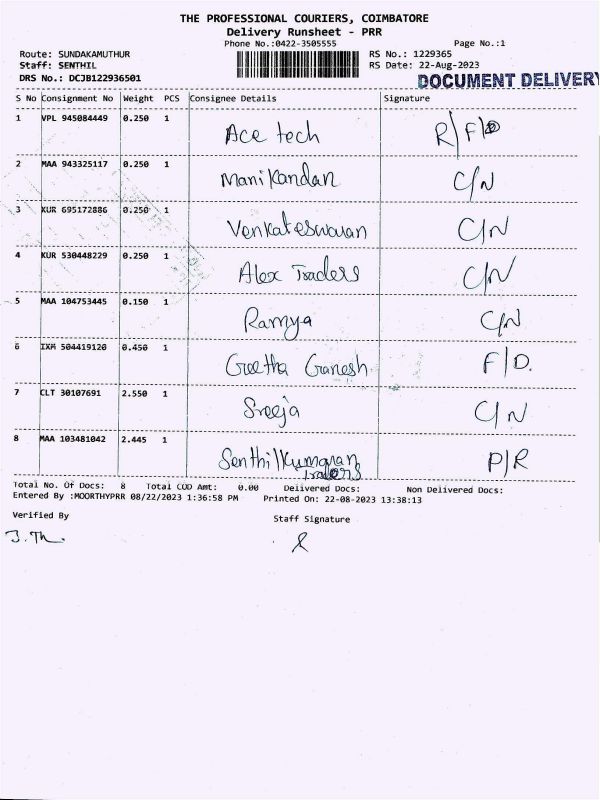 THE PROFESSIONAL COURIERS, COIMBATORE
Delivery Runsheet - PRR
Phone No.:0422-3505555 Page No.:1
Route: SUNDAKAMUTHUR RS No.: 1229365
Staff: SENTHIL RS Date: 22-Aug-2023
DRS No.: DCJB122936501 DOCUMENT DELIVERY
S No Consignment No Weight PCS Consignee Details Signature
1 VPL 945084449 0.250 1 Ace tech R/F/D
2 MAA 943325117 0.250 1 Manikandan C/N
3 KUR 695172886 0.250 1 Venkateswaran C/N
4 KUR 530448229 0.250 1 Alex Traders C/N
5 MAA 104753445 0.150 1 Ramya C/N
6 IXM 504419120 0.450 1 Geetha Ganesh F/D.
7 CLT 30107691 2.550 1 Sreeja C/N
8 MAA 103481042 2.445 1 Senthilkumaran P/R
Traders
Total No. Of Docs: 8 Total COD Amt: 0.00 Delivered Docs: Non Delivered Docs:
Entered By :MOORTHYPRR 08/22/2023 1:36:58 PM Printed On: 22-08-2023 13:38:13
Verified By Staff Signature